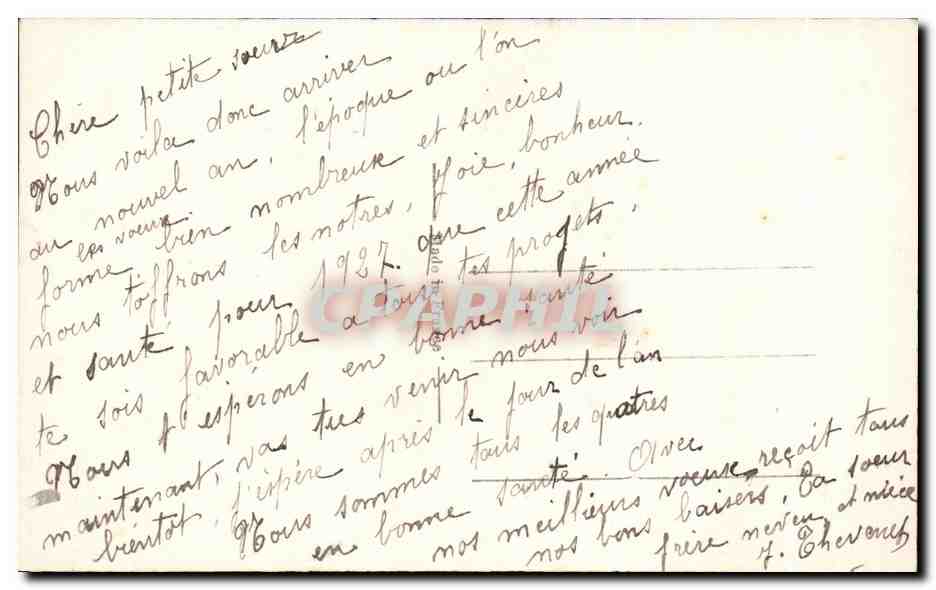 Chère petite soeur
Nous voila donc arriver
au nouvel an, l'époque ou l'on
les voeux
forme bien nombreux et sincères
nous t'offrons les notres, Joie, bonheur,
et santé pour 1927. que cette année
te sois favorable a tous tes projets.
Nous t'espérons en bonne santé
maintenant, vas tu venir nous voir
bientôt, j'espère après le jour de l'an
Nous sommes tous les quatres
en bonne santé. Avec
nos meilleurs voeux, reçoit tous
nos bons baisers. Ta soeur
frère neveu, et nièce
J.
Made in France
CPAPHIL